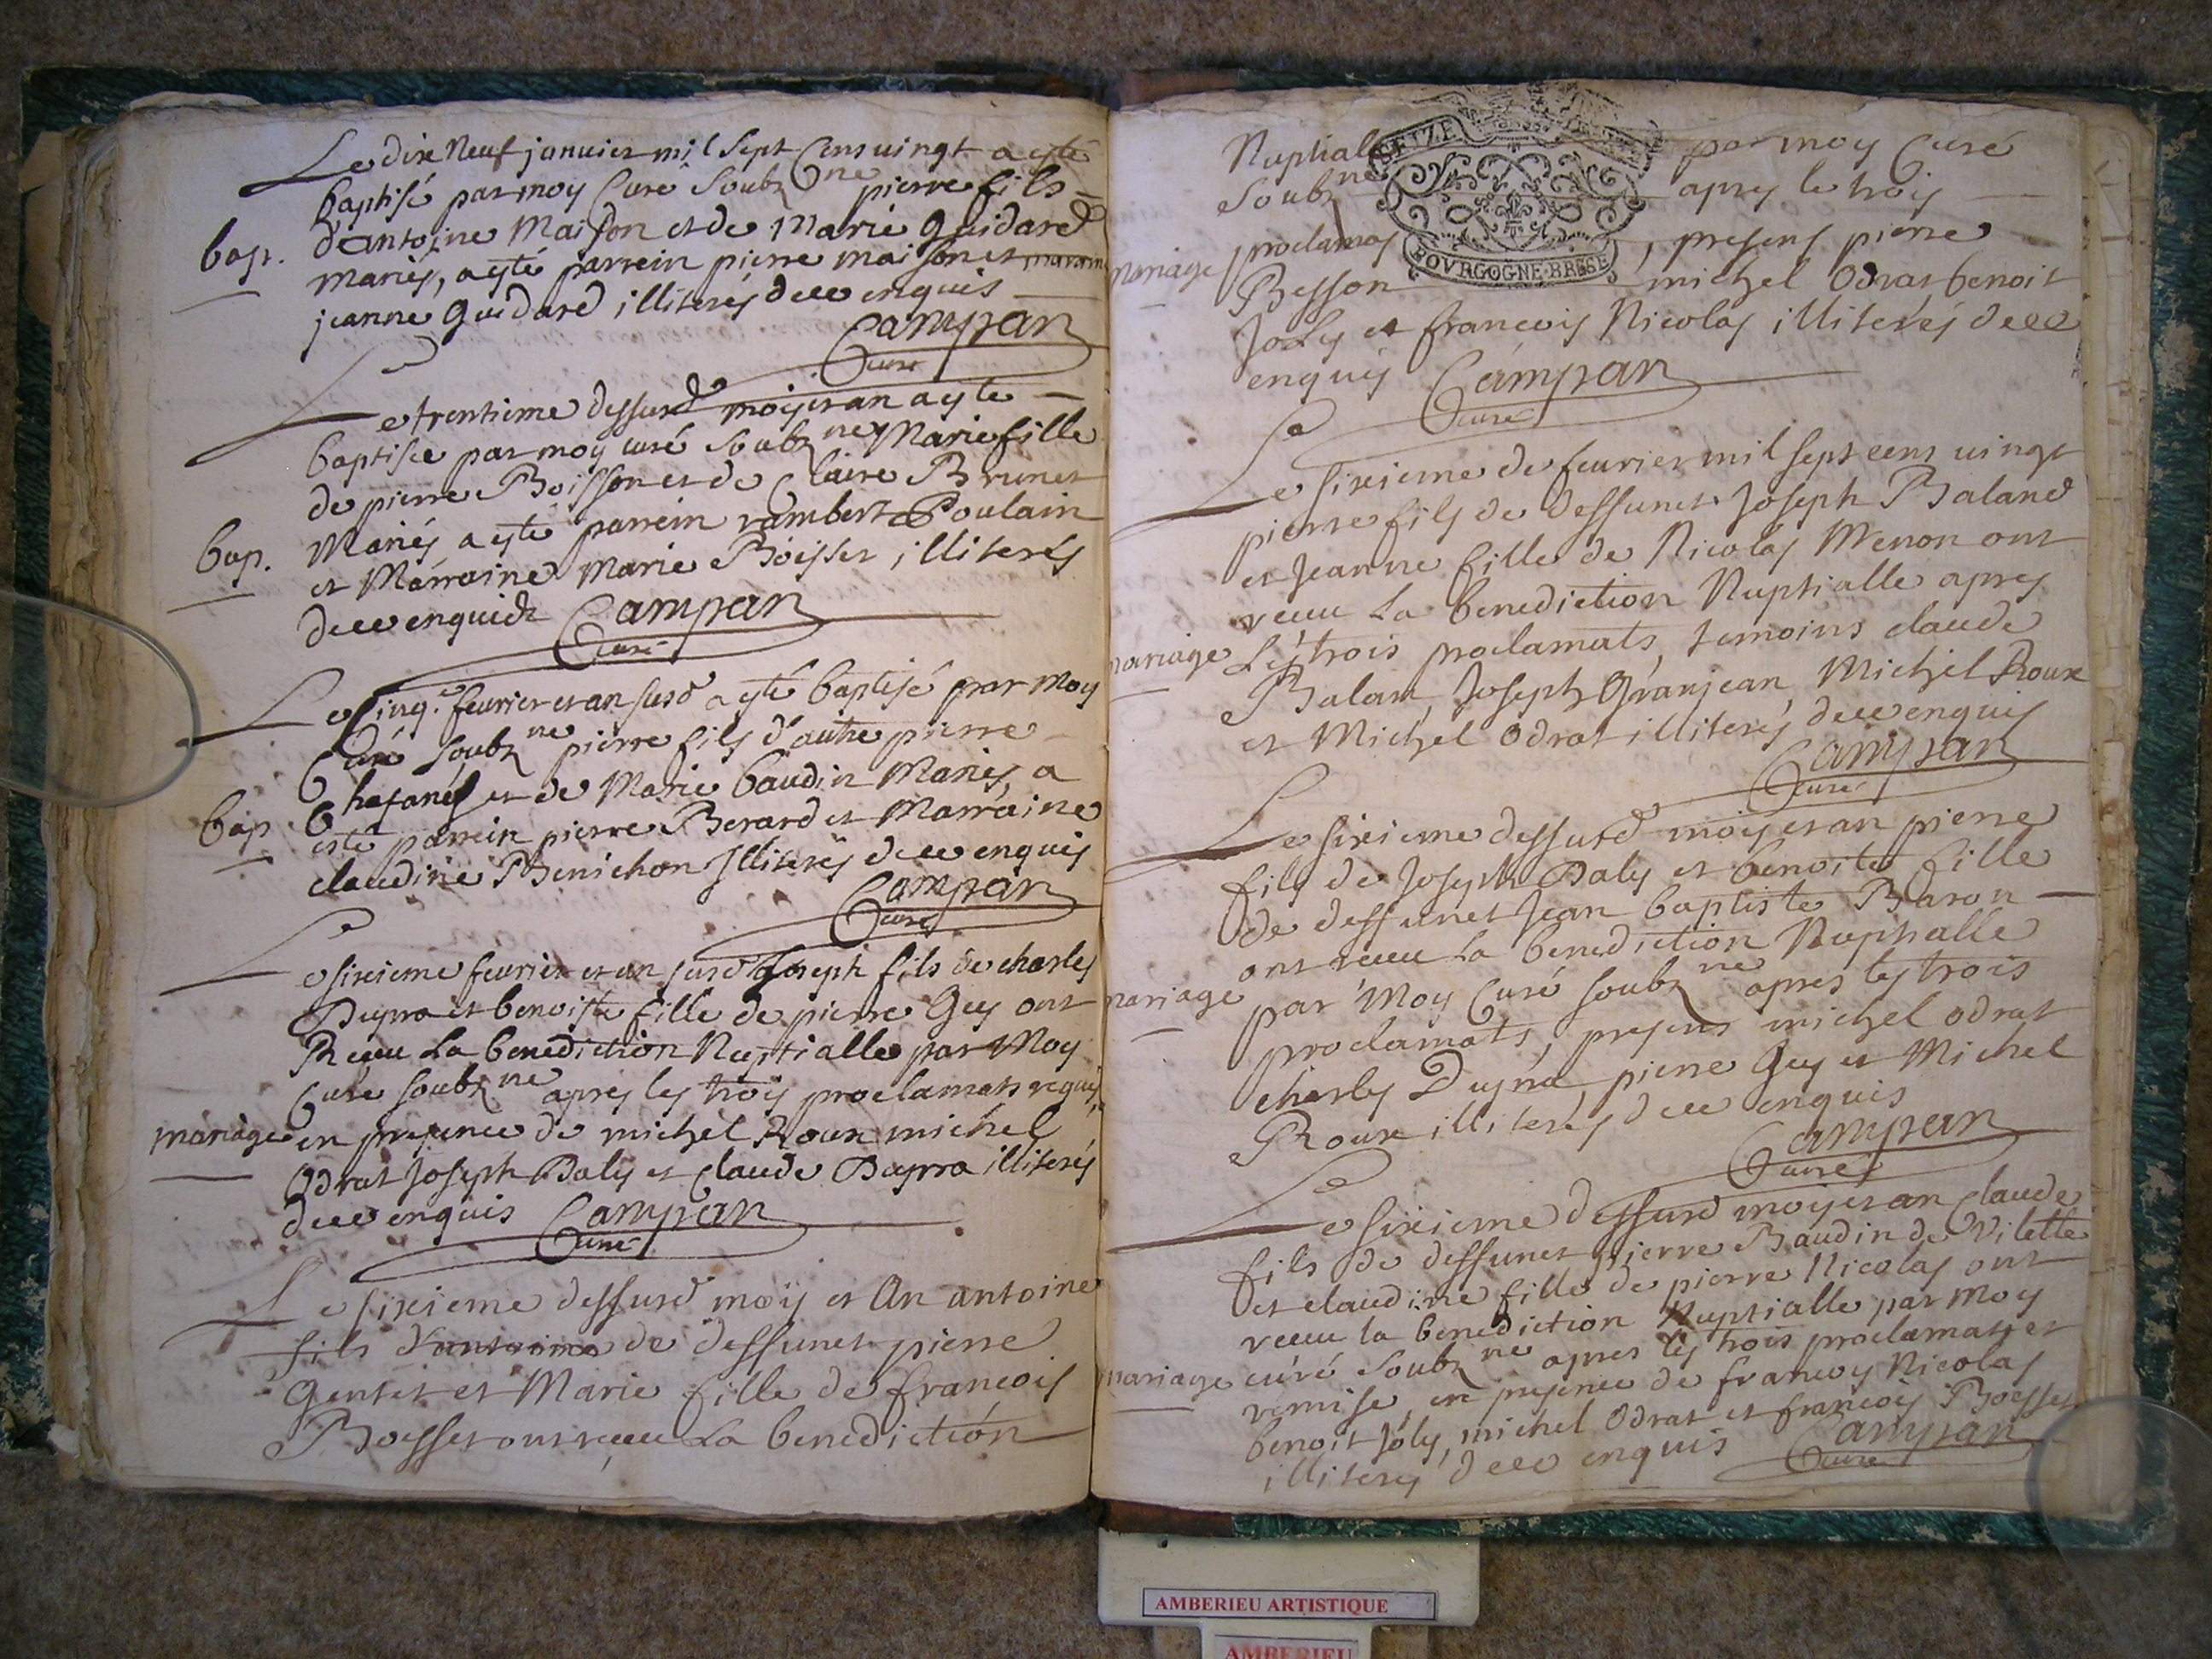 Le dixe Neuf januier mil sept Cens uingt a esté
baptisé par moy Curé Soubzne pierre fils
bap. d'antoine Maison et de Marie Guidard
mariés, a esté parrein pierre maison et
jeanne Guidard illiterés deue enquis
Campan
Curé
Le trentieme dessusd moys et an a yte
baptisée par moy curé Soubzne Marie fille
de pierre Boisson et de Claire Brunet
bap. Mariés a yté parrein rambert Poulain
et Marraine Marie Boisset illiterés
deue enquidz Campan
Curé
Le sinq.e feurier et an susd a yté baptisé par Moy
Curé Soubzne pierre fils d'autre pierre
et de Marie baudin Mariés, a
bap esté parrein pierre Berard et Marraine
claudine Benichon Illiterés deue enquis
Campan
Curé
Le sixieme feurier et an susd Joseph fils de charles
Dupra et benoiste fille de pierre Guy ont
Receu La benediction Nuptialle par Moy
Curé soubzne apres les troys proclamats requis,
mariage en presence de michel Roux michel
Odrat Joseph Baly et Claude Dupra illiterés
deue enquis Campan
Curé
Le sixieme dessusd moys et An antoine
fils d'antoine de deffunct pierre
Gentet et Marie fille de francois
Boesset ont receu La benediction
SEIZE
Nuptiale par moy Curé
Soubzne apres le troys
mariage proclamas , presens pierre
BOVRGOGNE·BRESSE
Besson michel Odrat benoit
Joly et francois Nicolas illiterés deue
enquis Campan
Curé
Le sixieme de feurier mil sept cens uingt
pierre fils de deffunct Joseph Baland
et Jeanne fille de Nicolas Menon ont
receu La benediction Nuptialle apres
mariage Les trois proclamats, temoins claude
Balan, Joseph Granjean, Michel Roux
et Michel Odrat illiterés deue enquis
Campan
Curé
Le sixieme dessusd moys et an pierre
fils de Joseph Baly et benoite fille
de deffunct Jean baptiste Baron
ont receu La benediction Nuptialle
mariage par Moy Curé Soubzne apres les trois
proclamats, presens michel odrat
charles Dupra, pierre Guy et Michel
Roux illiterés deue enquis
Campan
Curé
Le sixieme dessusd moys et an Claude
fils de deffunct pierre Baudin de Vilette
et claudine fille de pierre Nicolas ont
receu la benediction Nuptialle par Moy
mariage curé Soubzne apres les trois proclamats et
remise, en presence de francois Nicolas
benoit Joly, michel Odrat et francois Boesset
illiterés deue enquis Campan
Curé
AMBERIEU ARTISTIQUE
AMBERIEU